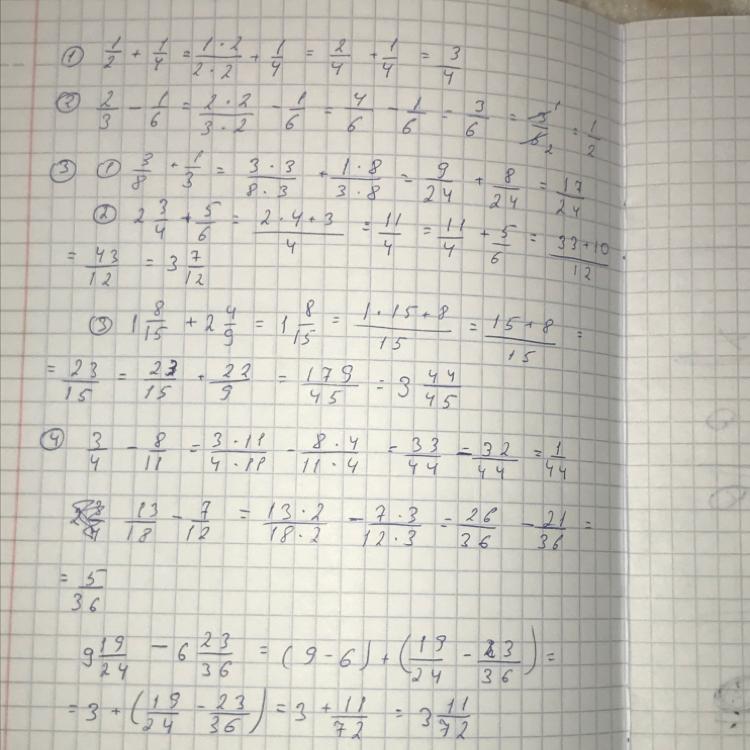 ① 1/2 + 1/4 = 1·2/2·2 + 1/4 = 2/4 + 1/4 = 3/4
② 2/3 - 1/6 = 2·2/3·2 - 1/6 = 4/6 - 1/6 = 3/6 = 3¹/6₂ = 1/2
③ ① 3/8 + 1/3 = 3·3/8·3 + 1·8/3·8 = 9/24 + 8/24 = 17/24
② 2 3/4 + 5/6 = 2·4+3/4 = 11/4 = 11/4 + 5/6 = 33+10/12
= 43/12 = 3 7/12
③ 1 8/15 + 2 4/9 = 1 8/15 = 1·15+8/15 = 15+8/15 =
= 23/15 = 23/15 + 22/9 = 179/45 = 3 44/45
④ 3/4 - 8/11 = 3·11/4·11 - 8·4/11·4 = 33/44 - 32/44 = 1/44
13/18 - 7/12 = 13·2/18·2 - 7·3/12·3 = 26/36 - 21/36 =
= 5/36
9 19/24 - 6 23/36 = (9-6) + (19/24 - 23/36) =
= 3 + (19/24 - 23/36) = 3 + 11/72 = 3 11/72